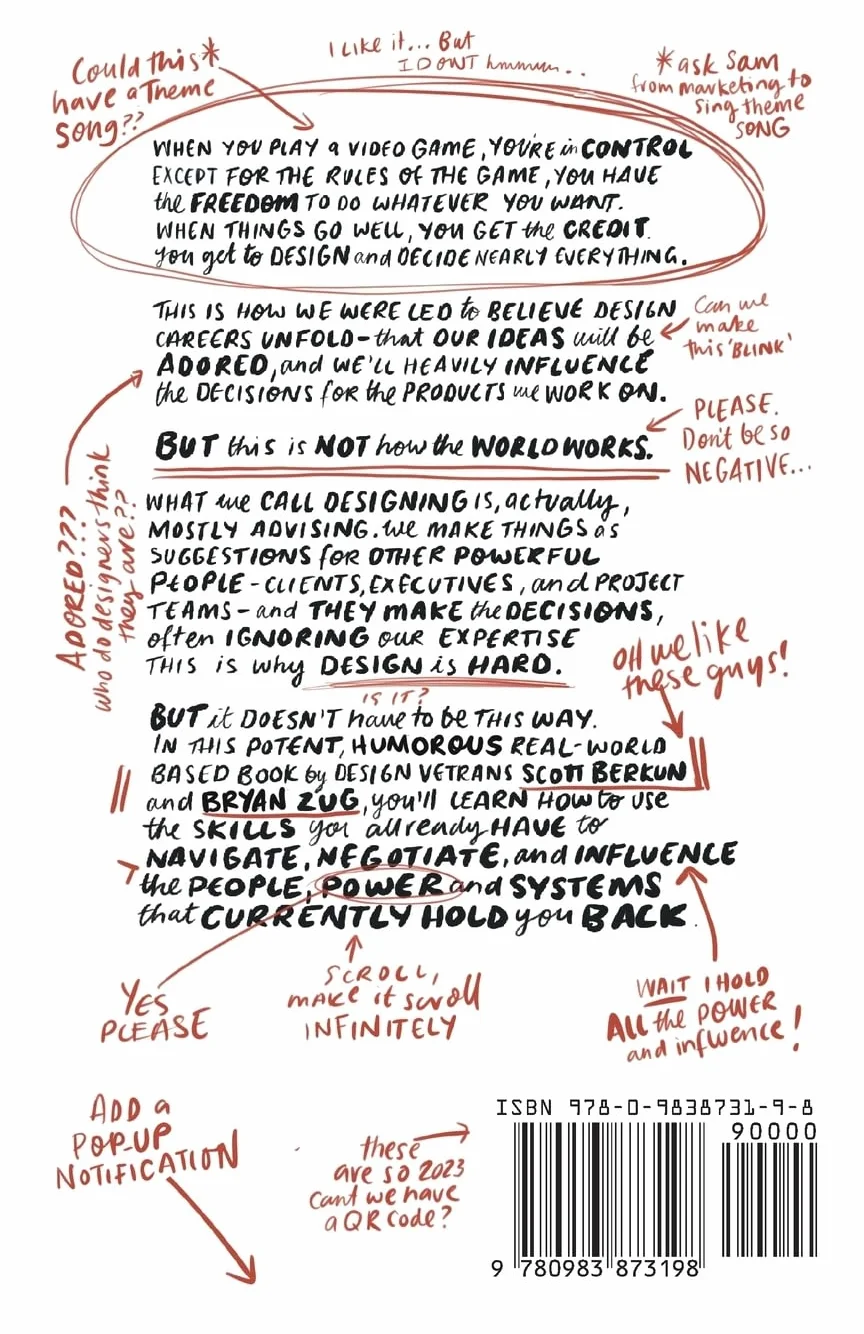 Could this*
have a Theme
song??
I like it... But
I DONT hmmmm...
*ask Sam
from marketing to
sing theme
SONG
WHEN YOU PLAY a VIDEO GAME, YOU'RE in CONTROL
EXCEPT FOR THE RULES OF THE GAME, YOU HAVE
the FREEDOM TO DO WHATEVER YOU WANT.
WHEN THINGS GO WELL, YOU GET the CREDIT.
You get to DESIGN and DECIDE NEARLY EVERYTHING.
THIS IS HOW WE WERE LED to BELIEVE DESIGN
CAREERS UNFOLD-that OUR IDEAS will be
ADORED, and WE'LL HEAVILY INFLUENCE
the DECISIONS for the PRODUCTS we WORK ON.
Can we
make
this 'BLINK'
BUT this is NOT how the WORLD WORKS.
PLEASE.
Don't be so
NEGATIVE...
ADORED???
who do designers think
they are??
WHAT we CALL DESIGNING IS, actually,
MOSTLY ADVISING. We MAKE THINGS as
SUGGESTIONS for OTHER POWERFUL
PEOPLE-CLIENTS, EXECUTIVES, and PROJECT
TEAMS-and THEY MAKE the DECISIONS,
often IGNORING our EXPERTISE
THIS is why DESIGN is HARD.
IS IT?
OH we like
these guys!
BUT it DOESN'T have to be THIS WAY.
IN THIS POTENT, HUMOROUS REAL-WORLD
BASED BOOK by DESIGN VETRANS SCOTT BERKUN
and BRYAN ZUG, you'll LEARN HOW to use
the SKILLS you allready HAVE to
NAVIGATE, NEGOTIATE, and INFLUENCE
the PEOPLE, POWER and SYSTEMS
that CURRENTLY HOLD you BACK.
YES
PLEASE
SCROLL,
make it scroll
INFINITELY
WAIT I HOLD
ALL the POWER
and influence!
ADD a
POP-UP
NOTIFICATION
these
are so 2023
Cant we have
a QR code?
ISBN 978-0-9838731-9-8
90000
9 780983 873198